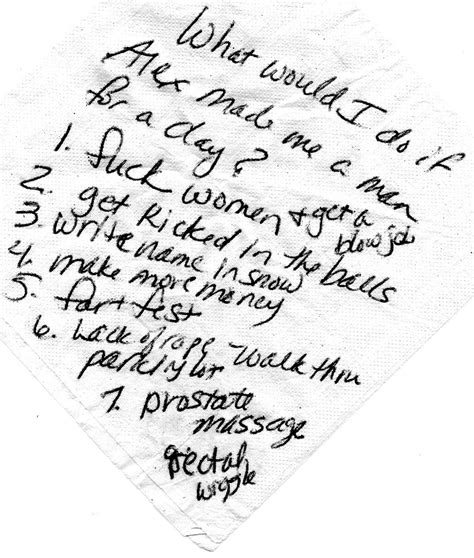 What would I do if
Alex made me a man
for a day?
1. fuck women + get a
blow job
2. get kicked in the balls
3. write name in snow
4. make more money
5. fart fest
6. Lack of rape - walk thru
parking lot
7. prostate
massage
rectal
wiggle